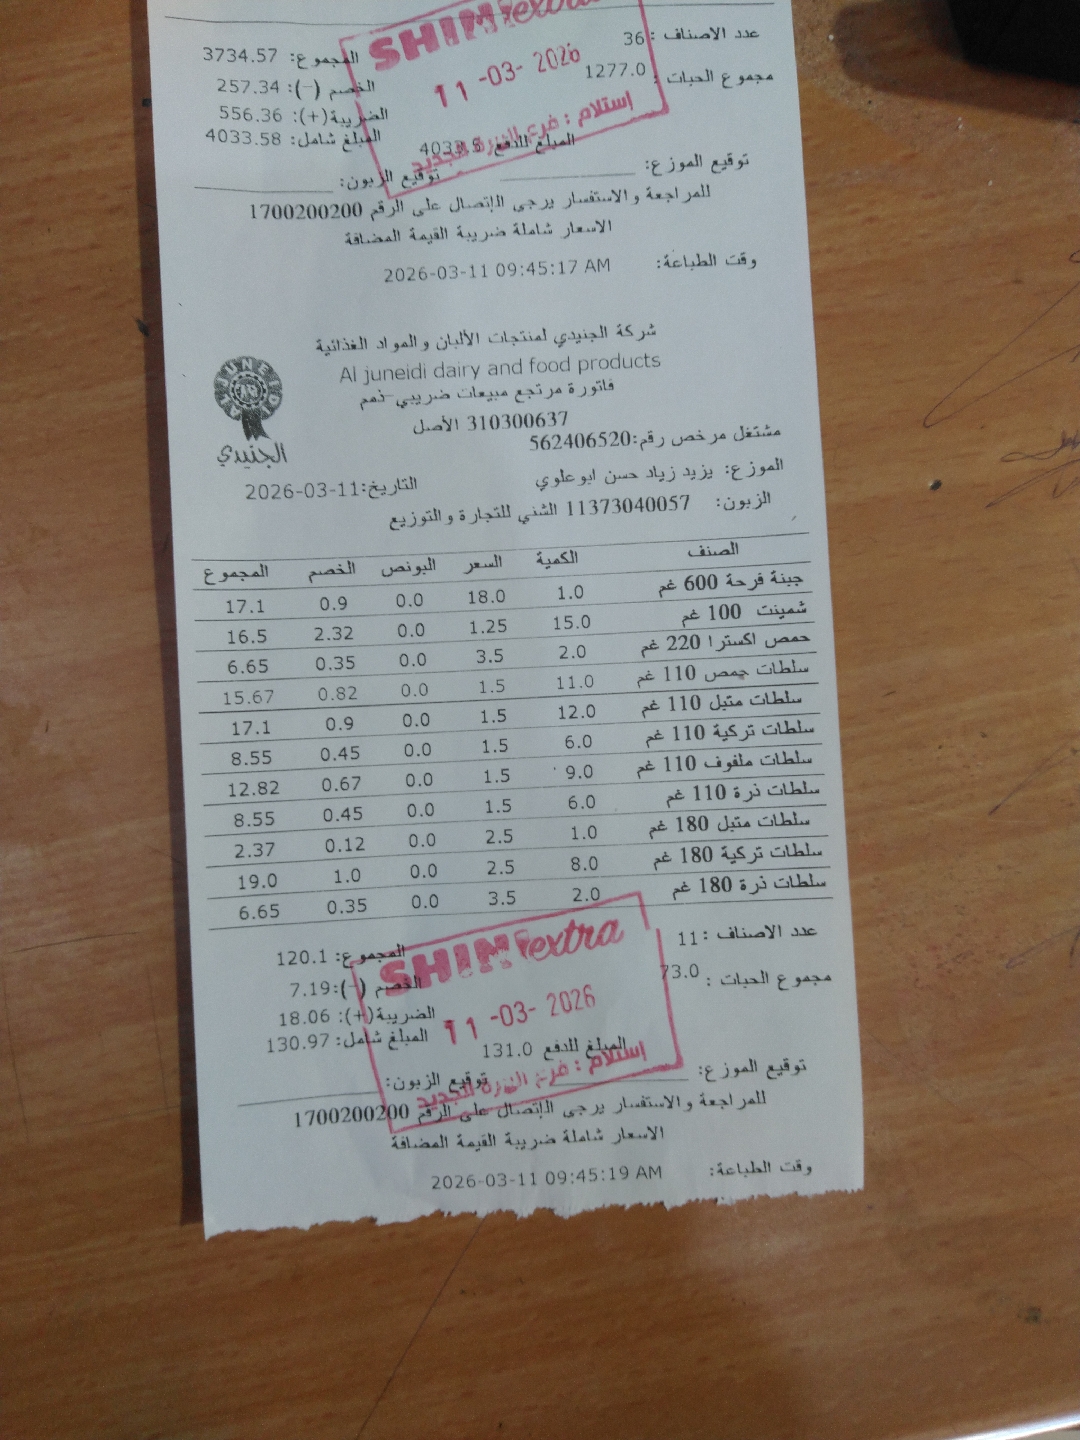 SHINI extra
عدد الاصناف : 36 المجموع: 3734.57
11-03-2026
مجموع الحبات : 1277.0 الخصم (-): 257.34
الضريبة(+): 556.36
إستلام : فرع
المبلغ للدفع 4033.5 المبلغ شامل: 4033.58
توقيع الموزع: توقيع الزبون:
للمراجعة والاستفسار يرجى الإتصال على الرقم 1700200200
الاسعار شاملة ضريبة القيمة المضافة
وقت الطباعة: 2026-03-11 09:45:17 AM
شركة الجنيدي لمنتجات الألبان والمواد الغذائية
Al juneidi dairy and food products
AL JUNEIDI
الجنيدي
فاتورة مرتجع مبيعات ضريبي-ذمم
310300637 الأصل
مشتغل مرخص رقم:562406520
الموزع: يزيد زياد حسن ابوعلوي التاريخ:2026-03-11
الزبون: 11373040057 الشني للتجارة والتوزيع
الصنف الكمية السعر البونص الخصم المجموع
جبنة فرحة 600 غم 1.0 18.0 0.0 0.9 17.1
شمينت 100 غم 15.0 1.25 0.0 2.32 16.5
حمص اكسترا 220 غم 2.0 3.5 0.0 0.35 6.65
سلطات حمص 110 غم 11.0 1.5 0.0 0.82 15.67
سلطات متبل 110 غم 12.0 1.5 0.0 0.9 17.1
سلطات تركية 110 غم 6.0 1.5 0.0 0.45 8.55
سلطات ملفوف 110 غم 9.0 1.5 0.0 0.67 12.82
سلطات ذرة 110 غم 6.0 1.5 0.0 0.45 8.55
سلطات متبل 180 غم 1.0 2.5 0.0 0.12 2.37
سلطات تركية 180 غم 8.0 2.5 0.0 1.0 19.0
سلطات ذرة 180 غم 2.0 3.5 0.0 0.35 6.65
عدد الاصناف : 11 المجموع: 120.1
SHINI extra
مجموع الحبات : 73.0 الخصم (-): 7.19
11-03-2026
الضريبة(+): 18.06
المبلغ للدفع 131.0 المبلغ شامل: 130.97
إستلام : فرع
توقيع الموزع: توقيع الزبون:
للمراجعة والاستفسار يرجى الإتصال على الرقم 1700200200
الاسعار شاملة ضريبة القيمة المضافة
وقت الطباعة: 2026-03-11 09:45:19 AM